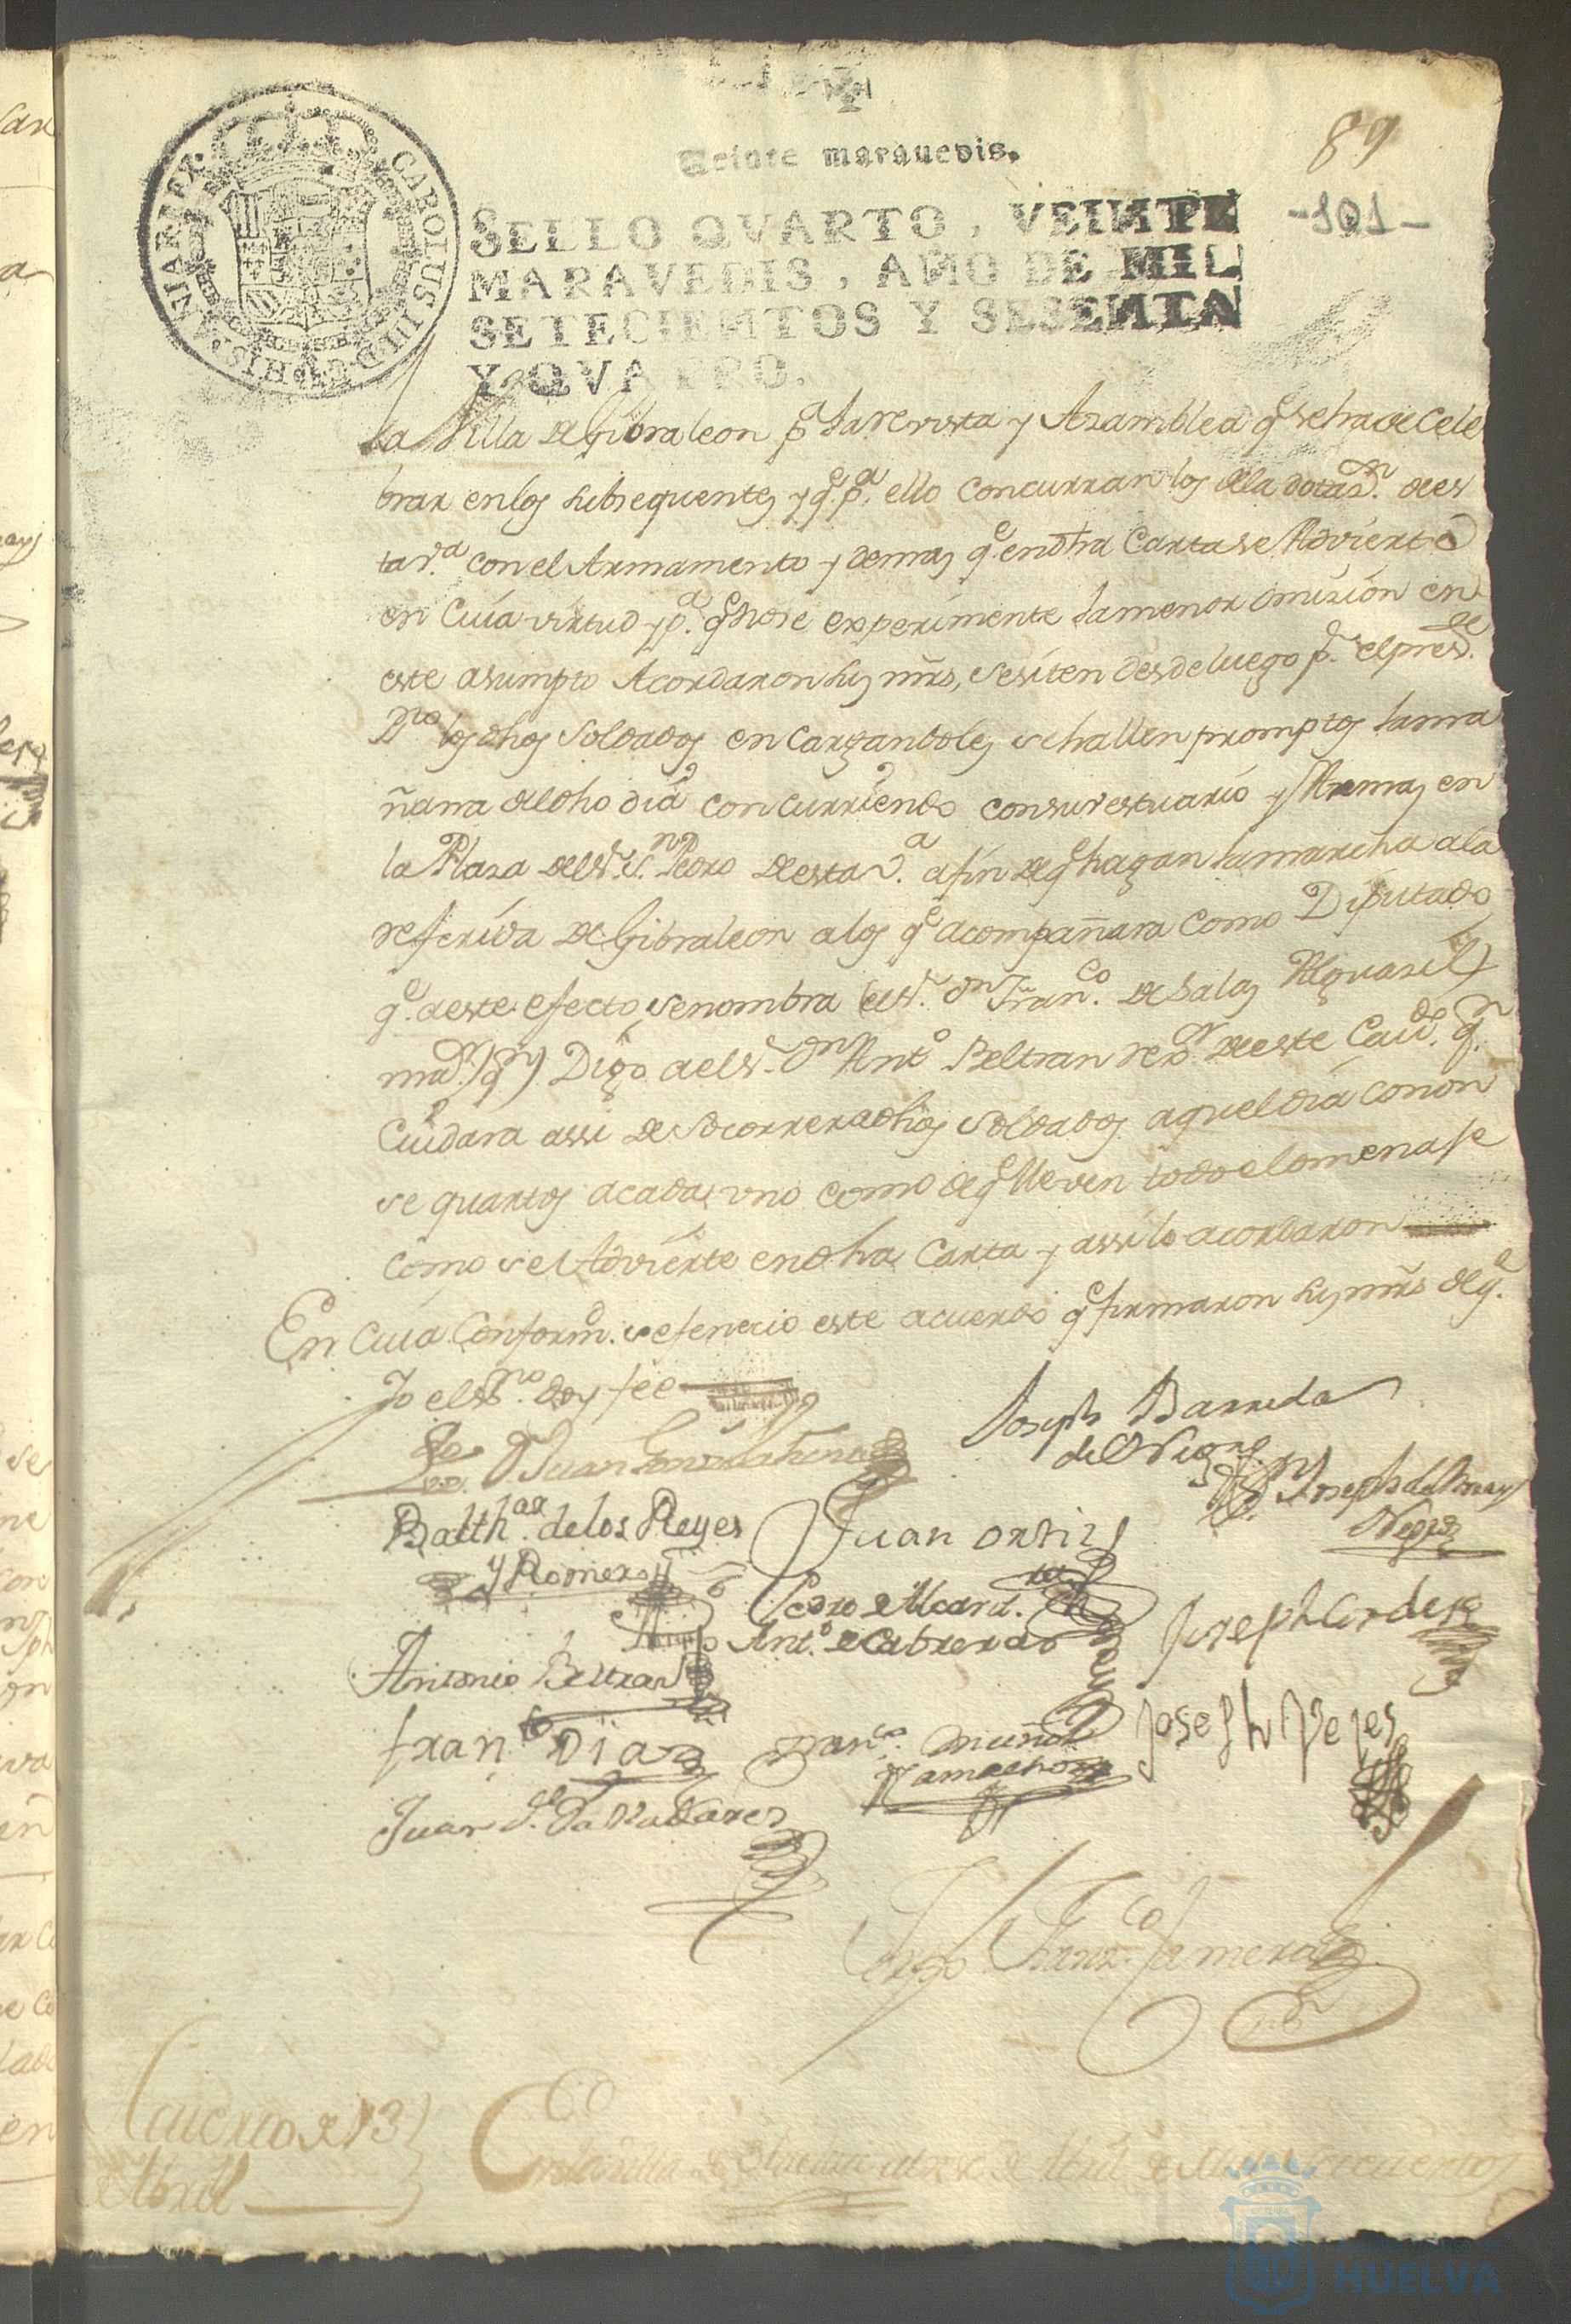 Veinte marauedis.
89
-101-
CAROLUS III D G HISPANIAR REX
SELLO QVARTO, VEINTE
MARAVEDIS, AÑO DE MIL
SETECIENTOS Y SESENTA
Y QVATRO.
la Villa de Gibraleon pª la revista y Asamblea qᵉ se ha de cele
brar en los subsequentes y qᵉ pª ello concurran los dela dotasⁿ. de es
ta vª con el Armamento y demas qᵉ en dha Carta se Advierte
en Cuia virtud y pª qᵉ no se experimente la menor omision en
este asumpto Acordaron sus mrs, se siten desde luego pʳ el presᵗᵉ
los dhos Soldados encargandoles se hallen promptos la ma
ñana del dho dia concurriendo con su vestuario y Armas en
la Plaza del Sʳ Sⁿ Pedro de esta vª a fin de qᵉ hagan la marcha a la
referida de Gibraleon a los qᵉ acompañara como Diputado
qᵉ a este efecto se nombra el Sʳ. Dⁿ Franᶜᵒ. de Salas Alguasil
maʸʳ Digo a el Sʳ. Dⁿ Antᵒ Beltran rexʳ de este Cavᵈᵒ. qⁿ
Cuidara assi de socorrer a dhos soldados aquel dia con on
se quartos a cada uno como de qᵉ lleven todo el omenase
como se Advierte en dha Carta y assi lo acordaron
En Cuia Conformᵈ. se fenecio este acuerdo qᵉ firmaron sus mrs de qᵉ.
Yo el Sⁿᵒ. doy fee
Joseph Barreda
del Negro
Dⁿ Joseph de
Negro
Balthᵃʳ. de los Reyes
y Romero
Juan Ortiz
Pedro de Alcant.
Antᵒ. de Cabrera
Joseph Cordero
Antonio Beltran
Franᶜᵒ Diaz
Franᶜᵒ. Muños
Camacho
Joseph Reyes
Juan
Franᶜᵒ
Acuerdo de 13
de Abril
En la villa de Huelva en trese de Abril de
HUELVA